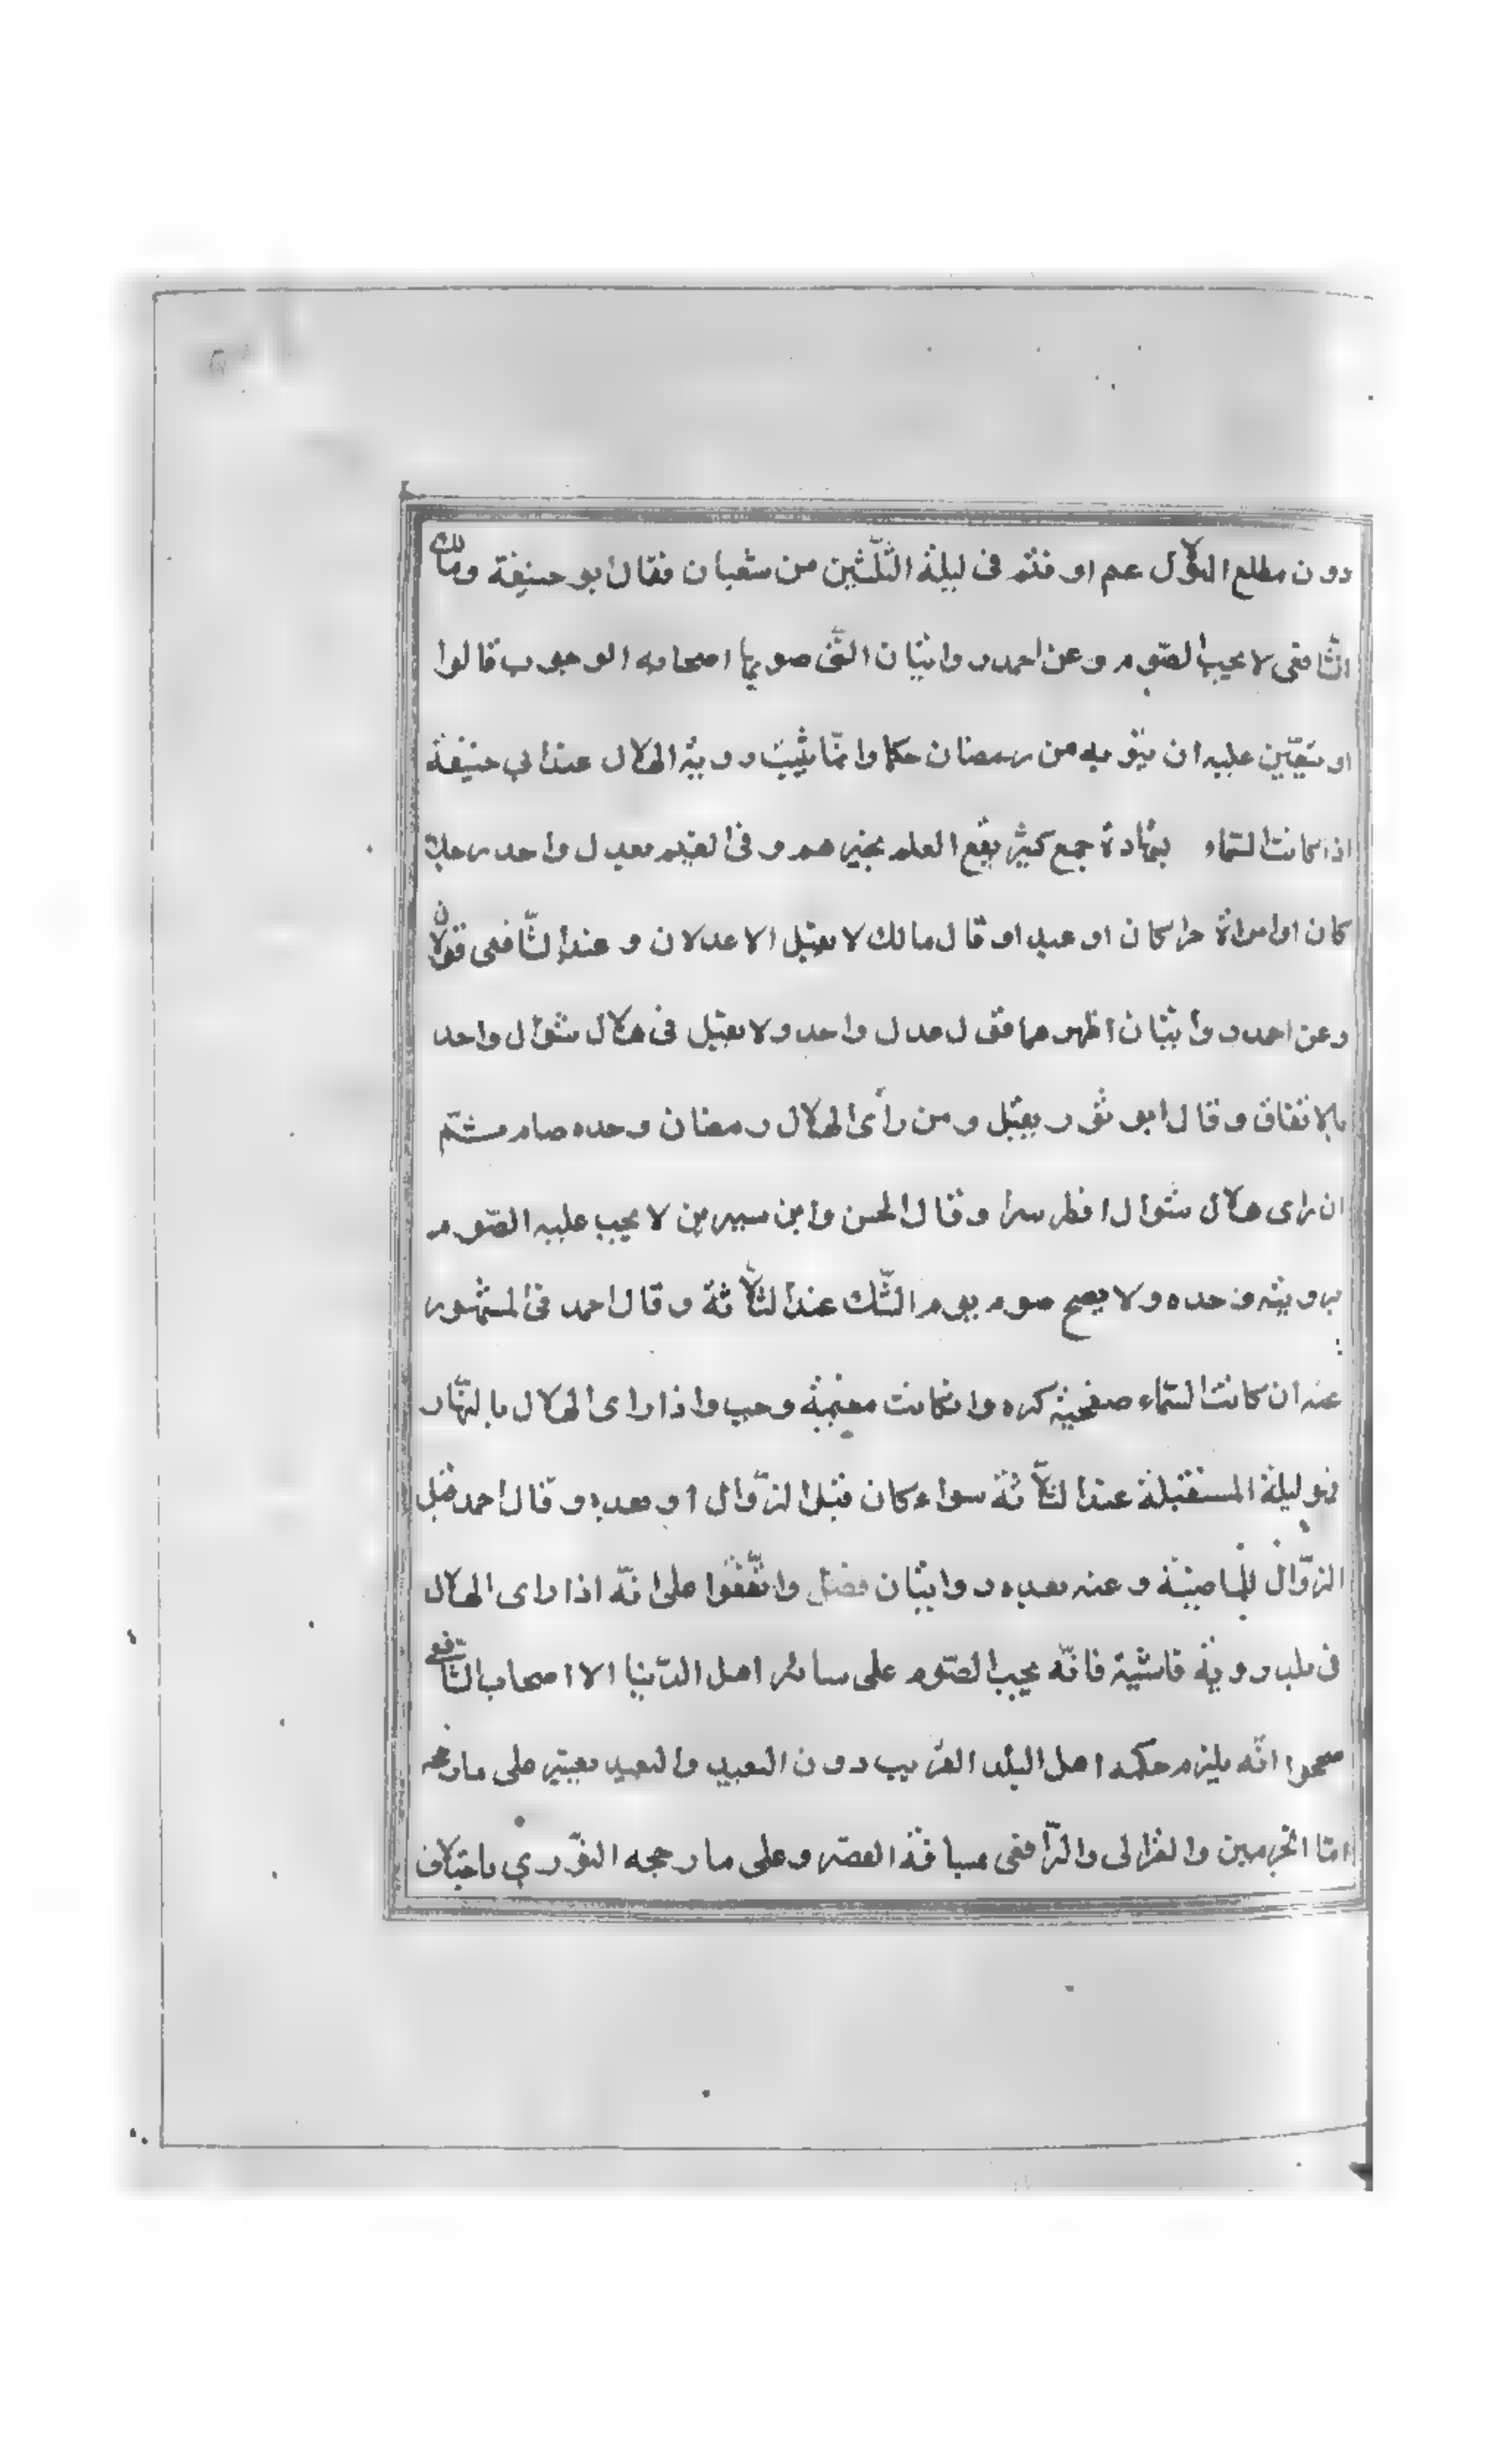 دون مطلع الهلال غم او قتم فى ليلة الثّلثين من شعبان فقال ابو حنيفة ومالك
الشّافقى لا يجب الصّوم وعن احمد روايتان التّى صوبها اصحابه الوجوب قالوا
او يتعيّن عليه ان ينويه من رمضان حكما وانمّا يثبت رويته الهلال عند ابي حنيفة
اذا كانت السّماء بشهادة جمع كثير يقع العلم بخبرهم و فى الغيم بعدل واحد رجلا
كان او امراة حرا كان او عبد او قال مالك لا يقبل الا عدلان و عند الشّافعى قولان
وعن احمد روايتان اظهرهما قول عدل واحد ولا يقبل فى هلال شوال واحد
بالاتفاق وقال ابو ثور يقبل ومن رأى الهلال رمضان وحده صام ثم
ان راى هلال شوال افطر سرا وقال الحسن وابن سيرين لا يجب عليه الصّوم
برويته وحده ولا يصح صوم يوم الشّك عند الثلاثة وقال احمد فى المشهور
عنه ان كانت السّماء كره وانكانت مغيمة وجب واذا راى الهلال بالنّهار
فهو ليلة المستقبلة عند الثلاثة سواء كان قبل الزّوال او بعده وقال احمد قبل
الزّوال للماضيّة وعنه بعده روايتان واتّفقوا على انّه اذا راى الهلال
فى بلد روية فاشية فانّه يجب الصّوم على سائر اهل الدّنيا الا اصحاب الشافعى
صححوا انّه يلزم حكمه اهل البلد القريب دون البعيد والبعيد يعتبر على ما رجحه
امّا الحرمين والغزالى والرّافعى مسافة القصر وعلى ما رجحه النوّوري باختلاف